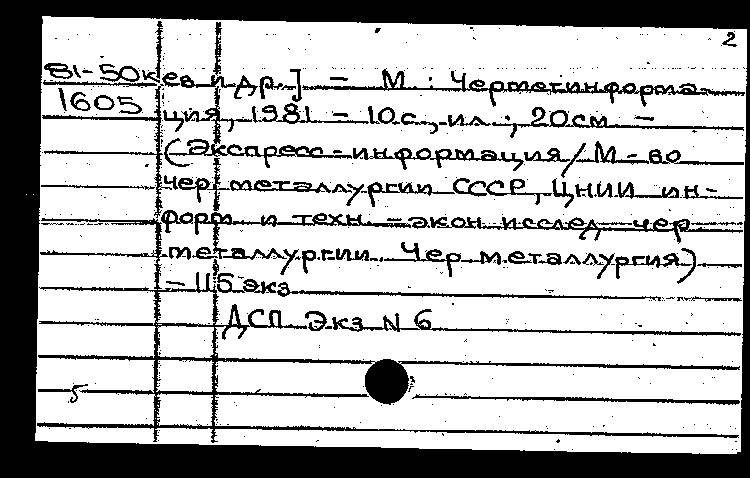 2
81-50к ев и др.] - М. : Черметинформа-
1605 ция, 1981 - 10 с., ил.; 20 см -
(Экспресс-информация / М-во
чер металлургии СССР, ЦНИИ ин-
форм. и техн.-экон. исслед. чер.
металлургии. Чер металлургия)
- 115 экз
ДСП Экз N 6
5